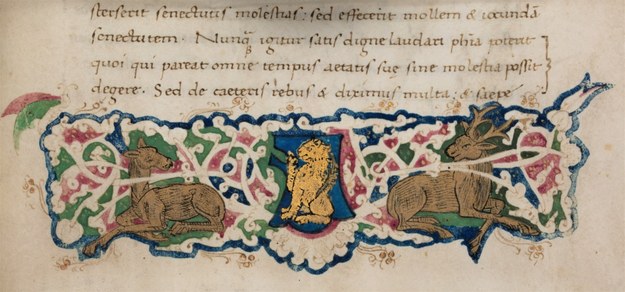 sterserit senectutis molestias: sed effecerit mollem & iocundã
senectutem. Nunq̃ igitur satis digne laudari phĩa poterit
quoi qui pareat omne tempus aetatis suę sine molestia possit
degere. Sed de caeteris rebus & diximus multa: & saepe